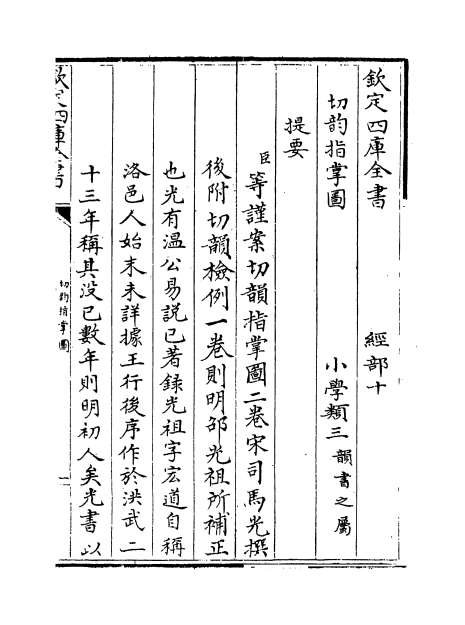 欽定四庫全書　經部十
切韵指掌圖　小學類三韻書之屬
提要
臣等謹案切韻指掌圖二卷宋司馬光撰
後附切韻檢例一卷則明邵光祖所補正
也光有溫公易說已著録光祖字宏道自稱
洛邑人始末未詳據王行後序作於洪武二
十三年稱其没已數年則明初人矣光書以
欽定四庫全書
切韵指掌圖
一